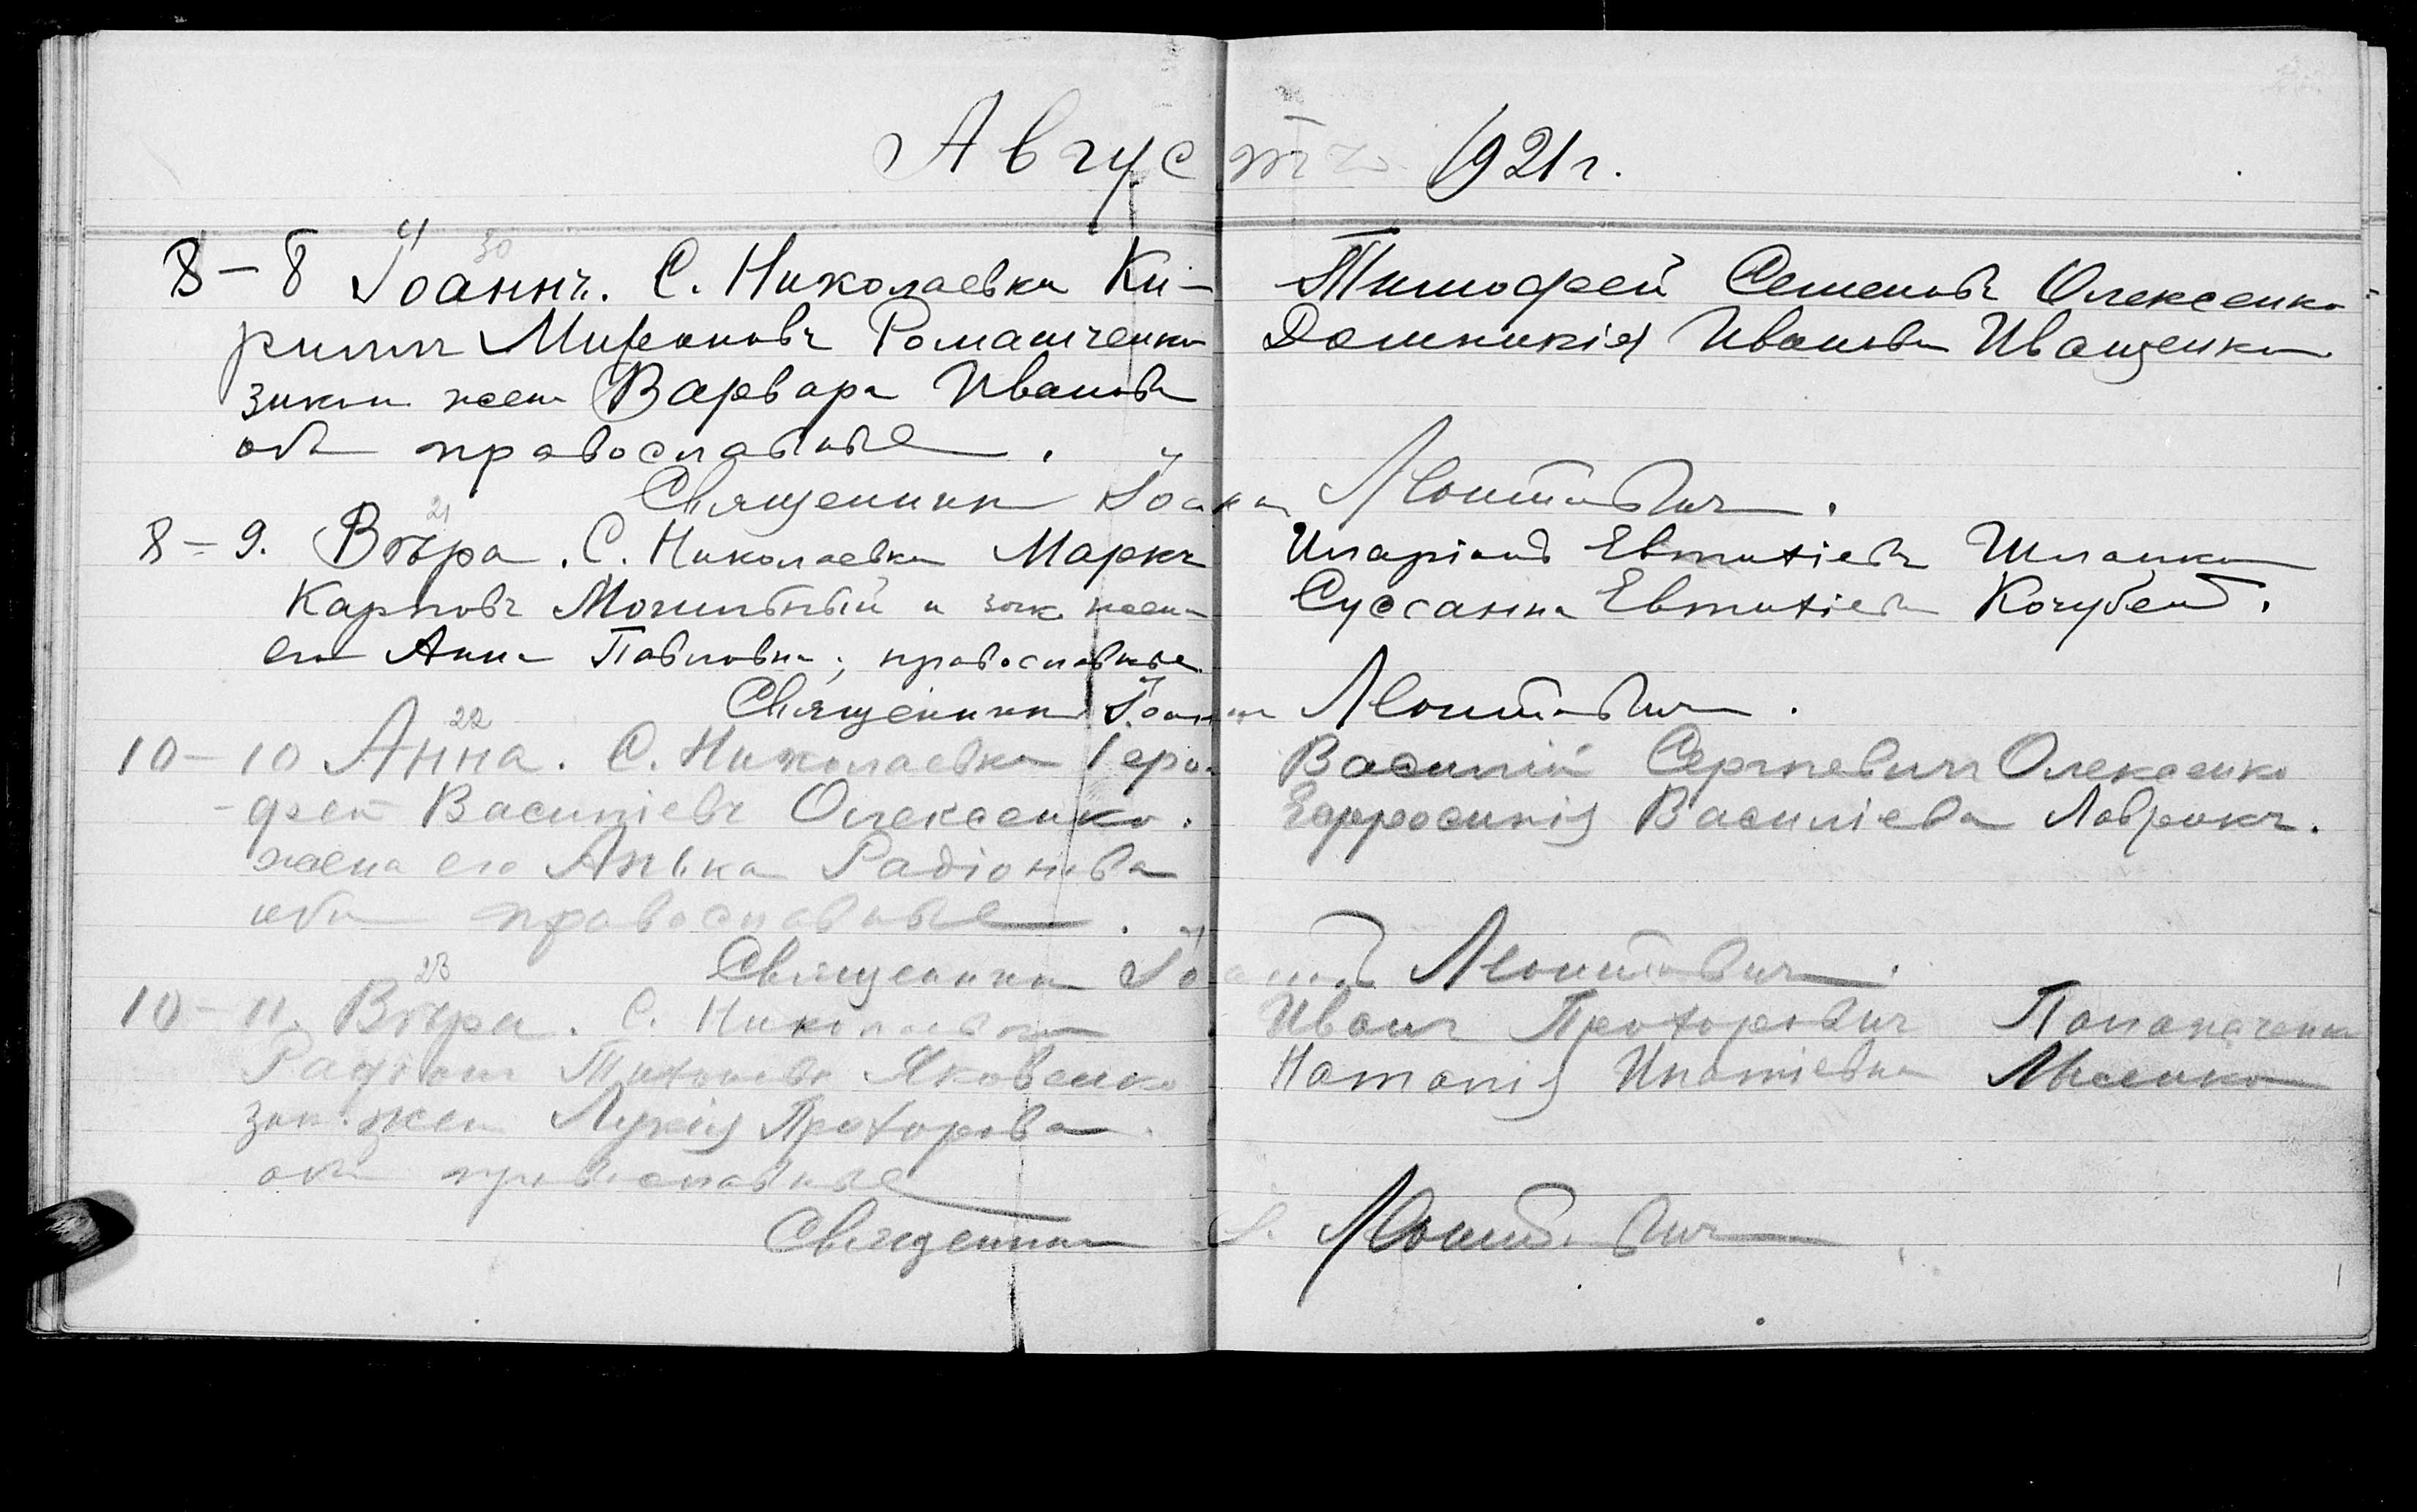 Августъ 1921 г.
4 30
8 – 8 Іоаннъ. С. Николаевки Ки-
риллъ Мироновъ Ромашченко
закон жена Варвара Иванова
оба православные.
Священникъ Іоаннъ Леонтовичъ.
Тимофей Семеновъ Олексенко
Домникія Иванова Иващенкова
21
8 – 9. Вѣра. С. Николаевки Маркъ
Карповъ Могильный и зак жена
его Анна Павловна; православные
Священникъ Іоаннъ Леонтовичъ.
Иларіонъ Евтихіевъ
Суссанна Евтихіева Кочубей.
22
10 – 10 Анна. С. Николаевки Геро-
фей Василіевъ Олексенко.
жена его Радіонова
оба православные.
Священникъ Іоаннъ Леонтовичъ.
Василій Сергіевичъ Олексенко
Евфросинія Василіева
23
10 – 11. Вѣра. С. Николаевки
Радіонъ Тихоновъ Яковенко
зак. жен Лукія Прохорова.
оба православные
Священникъ І. Леонтовичъ.
Иванъ Прохоровичъ
Наталія Игнатіевна Лысенко